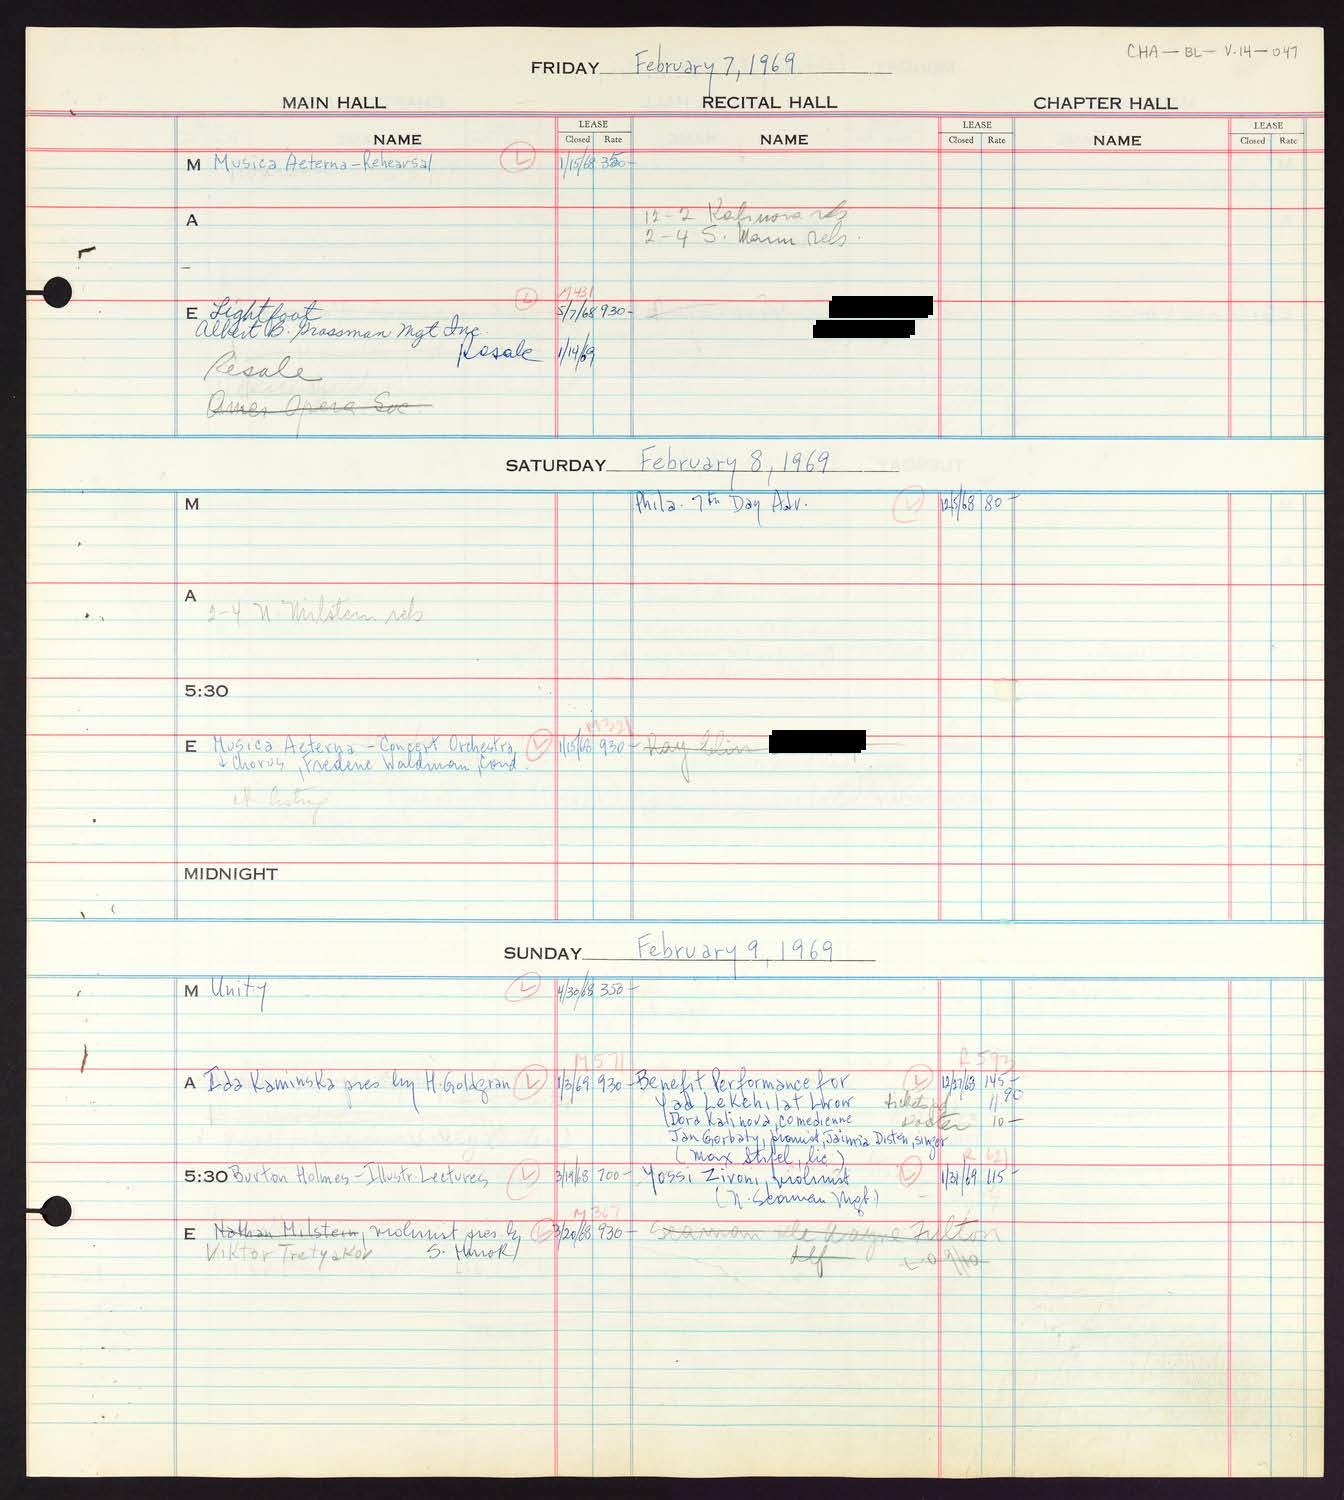 CHA-BL-V.14-047
FRIDAY February 7, 1969
MAIN HALL RECITAL HALL CHAPTER HALL
NAME LEASE Closed Rate NAME LEASE Closed Rate NAME LEASE Closed Rate
M Musica Aeterna - Rehearsal L 1/15/68 350-
A 12-2 Kalinova reh
2-4 S. Mann reh.
M431
E Lightfoot L 5/7/68 930-
Albert B. Grossman Mgt Inc.
Resale 1/14/69
Resale
Amer Opera Soc
SATURDAY February 8, 1969
M Phila. 7th Day Adv. L 12/5/68 80-
A
2-4 N Milstein reh
5:30
M321
E Musica Aeterna - Concert Orchestra L 1/15/68 930- Ray
& Chorus, Frederic Waldman, Cond.
MIDNIGHT
SUNDAY February 9, 1969
M Unity L 4/30/68 350-
M571 R593
A Ida Kaminska pres by H. Goldgran L 1/3/69 930- Benefit Performance for L 12/27/68 145-
Yad LeKehilat Lwow tickets 11 90
Dora Kalinova, comedienne poster 10-
Jan Gorbaty, pianist, Disten, singer
(Max Stifel, lic)
5:30 Burton Holmes - Illustr. Lectures L 3/19/68 700- Yossi Zivoni, violinist L 1/31/69 115-
(N. Seaman Mgt)
M367
E Nathan Milstein, violinist pres. by L 3/20/68 930- Seaman de Wayne Fulton
Viktor Tretyakov S. Hurok)